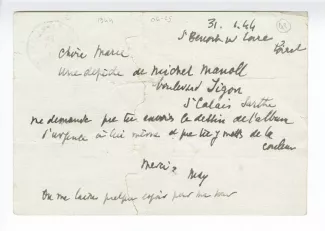 31. 1. 44
St Benoit sur Loire
Loiret
Chère Marie
Une dépêche de Michel Manoll
boulevard Ligon
St Calais Sarthe
me demande que tu envoies le dessin de l'album
d'urgence à lui même et que tu y mettes de la
couleur
Merci
Max
On me laisse quelque espoir pour ma sœur